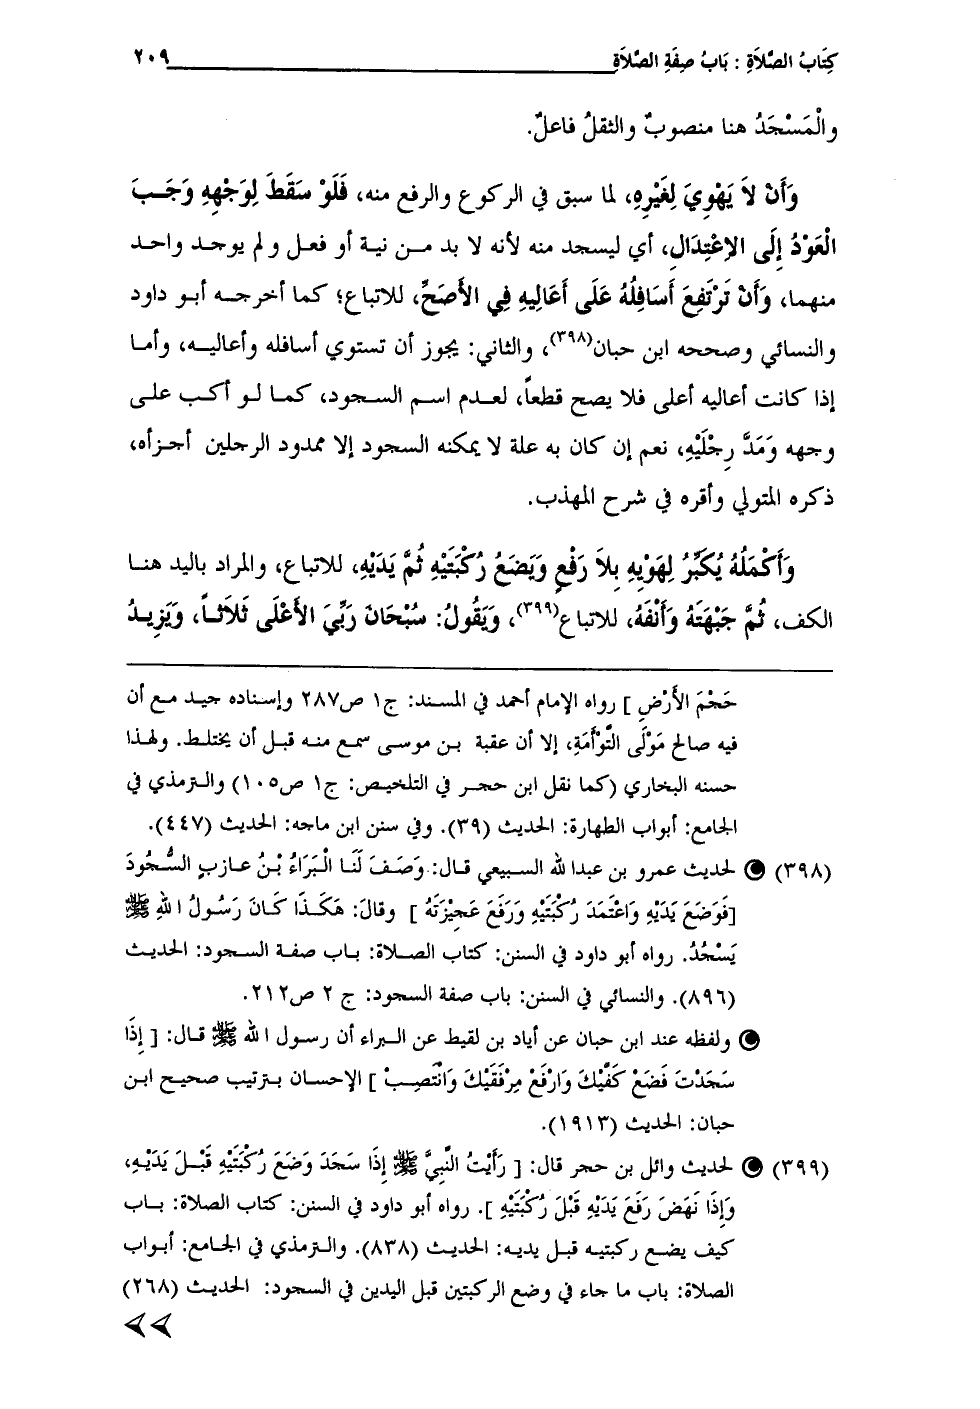 كِتَابُ الصَّلاَةِ : بَابُ صِفَةِ الصَّلاَةِ ٢٠٩
والْمَسْجَدُ هنا منصوبٌ والثقلُ فاعلٌ.
وَأَنْ لاَ يَهْوِيَ لِغَيْرِهِ، لما سبق في الركوع والرفع منه، فَلَوْ سَقَطَ لِوَجْهِهِ وَجَبَ
الْعَوْدُ إِلَى الاِعْتِدَالِ، أي ليسجد منه لأنه لا بد من نية أو فعل ولم يوجد واحد
منهما، وَأَنْ تَرْتَفِعَ أَسَافِلُهُ عَلَى أَعَالِيهِ فِي الأَصَحِّ، للاتباع؛ كما أخرجه أبو داود
والنسائي وصححه ابن حبان(٣٩٨)، والثاني: يجوز أن تستوي أسافله وأعاليه، وأما
إذا كانت أعاليه أعلى فلا يصح قطعاً، لعدم اسم السجود، كما لو أكب على
وجهه وَمَدَّ رِجْلَيْهِ، نعم إن كان به علة لا يمكنه السجود إلا ممدود الرجلين أجزأه،
ذكره المتولي وأقره في شرح المهذب.
وَأَكْمَلُهُ يُكَبِّرُ لِهَوِيهِ بِلاَ رَفْعٍ وَيَضَعُ رُكْبَتَيْهِ ثُمَّ يَدَيْهِ، للاتباع، والمراد باليد هنا
الكف، ثُمَّ جَبْهَتَهُ وَأَنْفَهُ، للاتباع(٣٩٩)، وَيَقُولُ: سُبْحَانَ رَبِّيَ الأَعْلَى ثَلاَثاً، وَيَزِيدُ
حَجْمَ الأَرْضِ ] رواه الإمام أحمد في المسند: ج١ ص٢٨٧ وإسناده جيد مع أن
فيه صالح مَوْلَى التَّوْأَمَةِ، إلا أن عقبة بن موسى سمع منه قبل أن يختلط. ولهذا
حسنه البخاري (كما نقل ابن حجر في التلخيص: ج١ ص١٠٥) والترمذي في
الجامع: أبواب الطهارة: الحديث (٣٩). وفي سنن ابن ماجه: الحديث (٤٤٧).
(٣٩٨) لحديث عمرو بن عبدا لله السبيعي قال: وَصَفَ لَنَا الْبَرَاءُ بْنُ عازبٍ السُّجُودَ
[فَوَضَعَ يَدَيْهِ وَاعْتَمَدَ رُكْبَتَيْهِ وَرَفَعَ عَجِيْزَتَهُ ] وقَالَ: هَكَذَا كَانَ رَسُولُ ا للهِ ﷺ
يَسْجُدُ. رواه أبو داود في السنن: كتاب الصلاة: باب صفة السجود: الحديث
(٨٩٦). والنسائي في السنن: باب صفة السجود: ج ٢ ص٢١٢.
ولفظه عند ابن حبان عن أياد بن لقيط عن البراء أن رسول ا لله ﷺ قال: [ إِذَا
سَجَدْتَ فَضَعْ كَفَّيْكَ وَارْفَعْ مِرْفَقَيْكَ وَانْتَصِبْ ] الإحسان بترتيب صحيح ابن
حبان: الحديث (١٩١٣).
(٣٩٩) لحديث وائل بن حجر قال: [ رَأَيْتُ النَّبِيَّ ﷺ إِذَا سَجَدَ وَضَعَ رُكْبَتَيْهِ قَبْلَ يَدَيْهِ،
وَإِذَا نَهَضَ رَفَعَ يَدَيْهِ قَبْلَ رُكْبَتَيْهِ ]. رواه أبو داود في السنن: كتاب الصلاة: باب
كيف يضع ركبتيه قبل يديه: الحديث (٨٣٨). والترمذي في الجامع: أبواب
الصلاة: باب ما جاء في وضع الركبتين قبل اليدين في السجود: الحديث (٢٦٨)